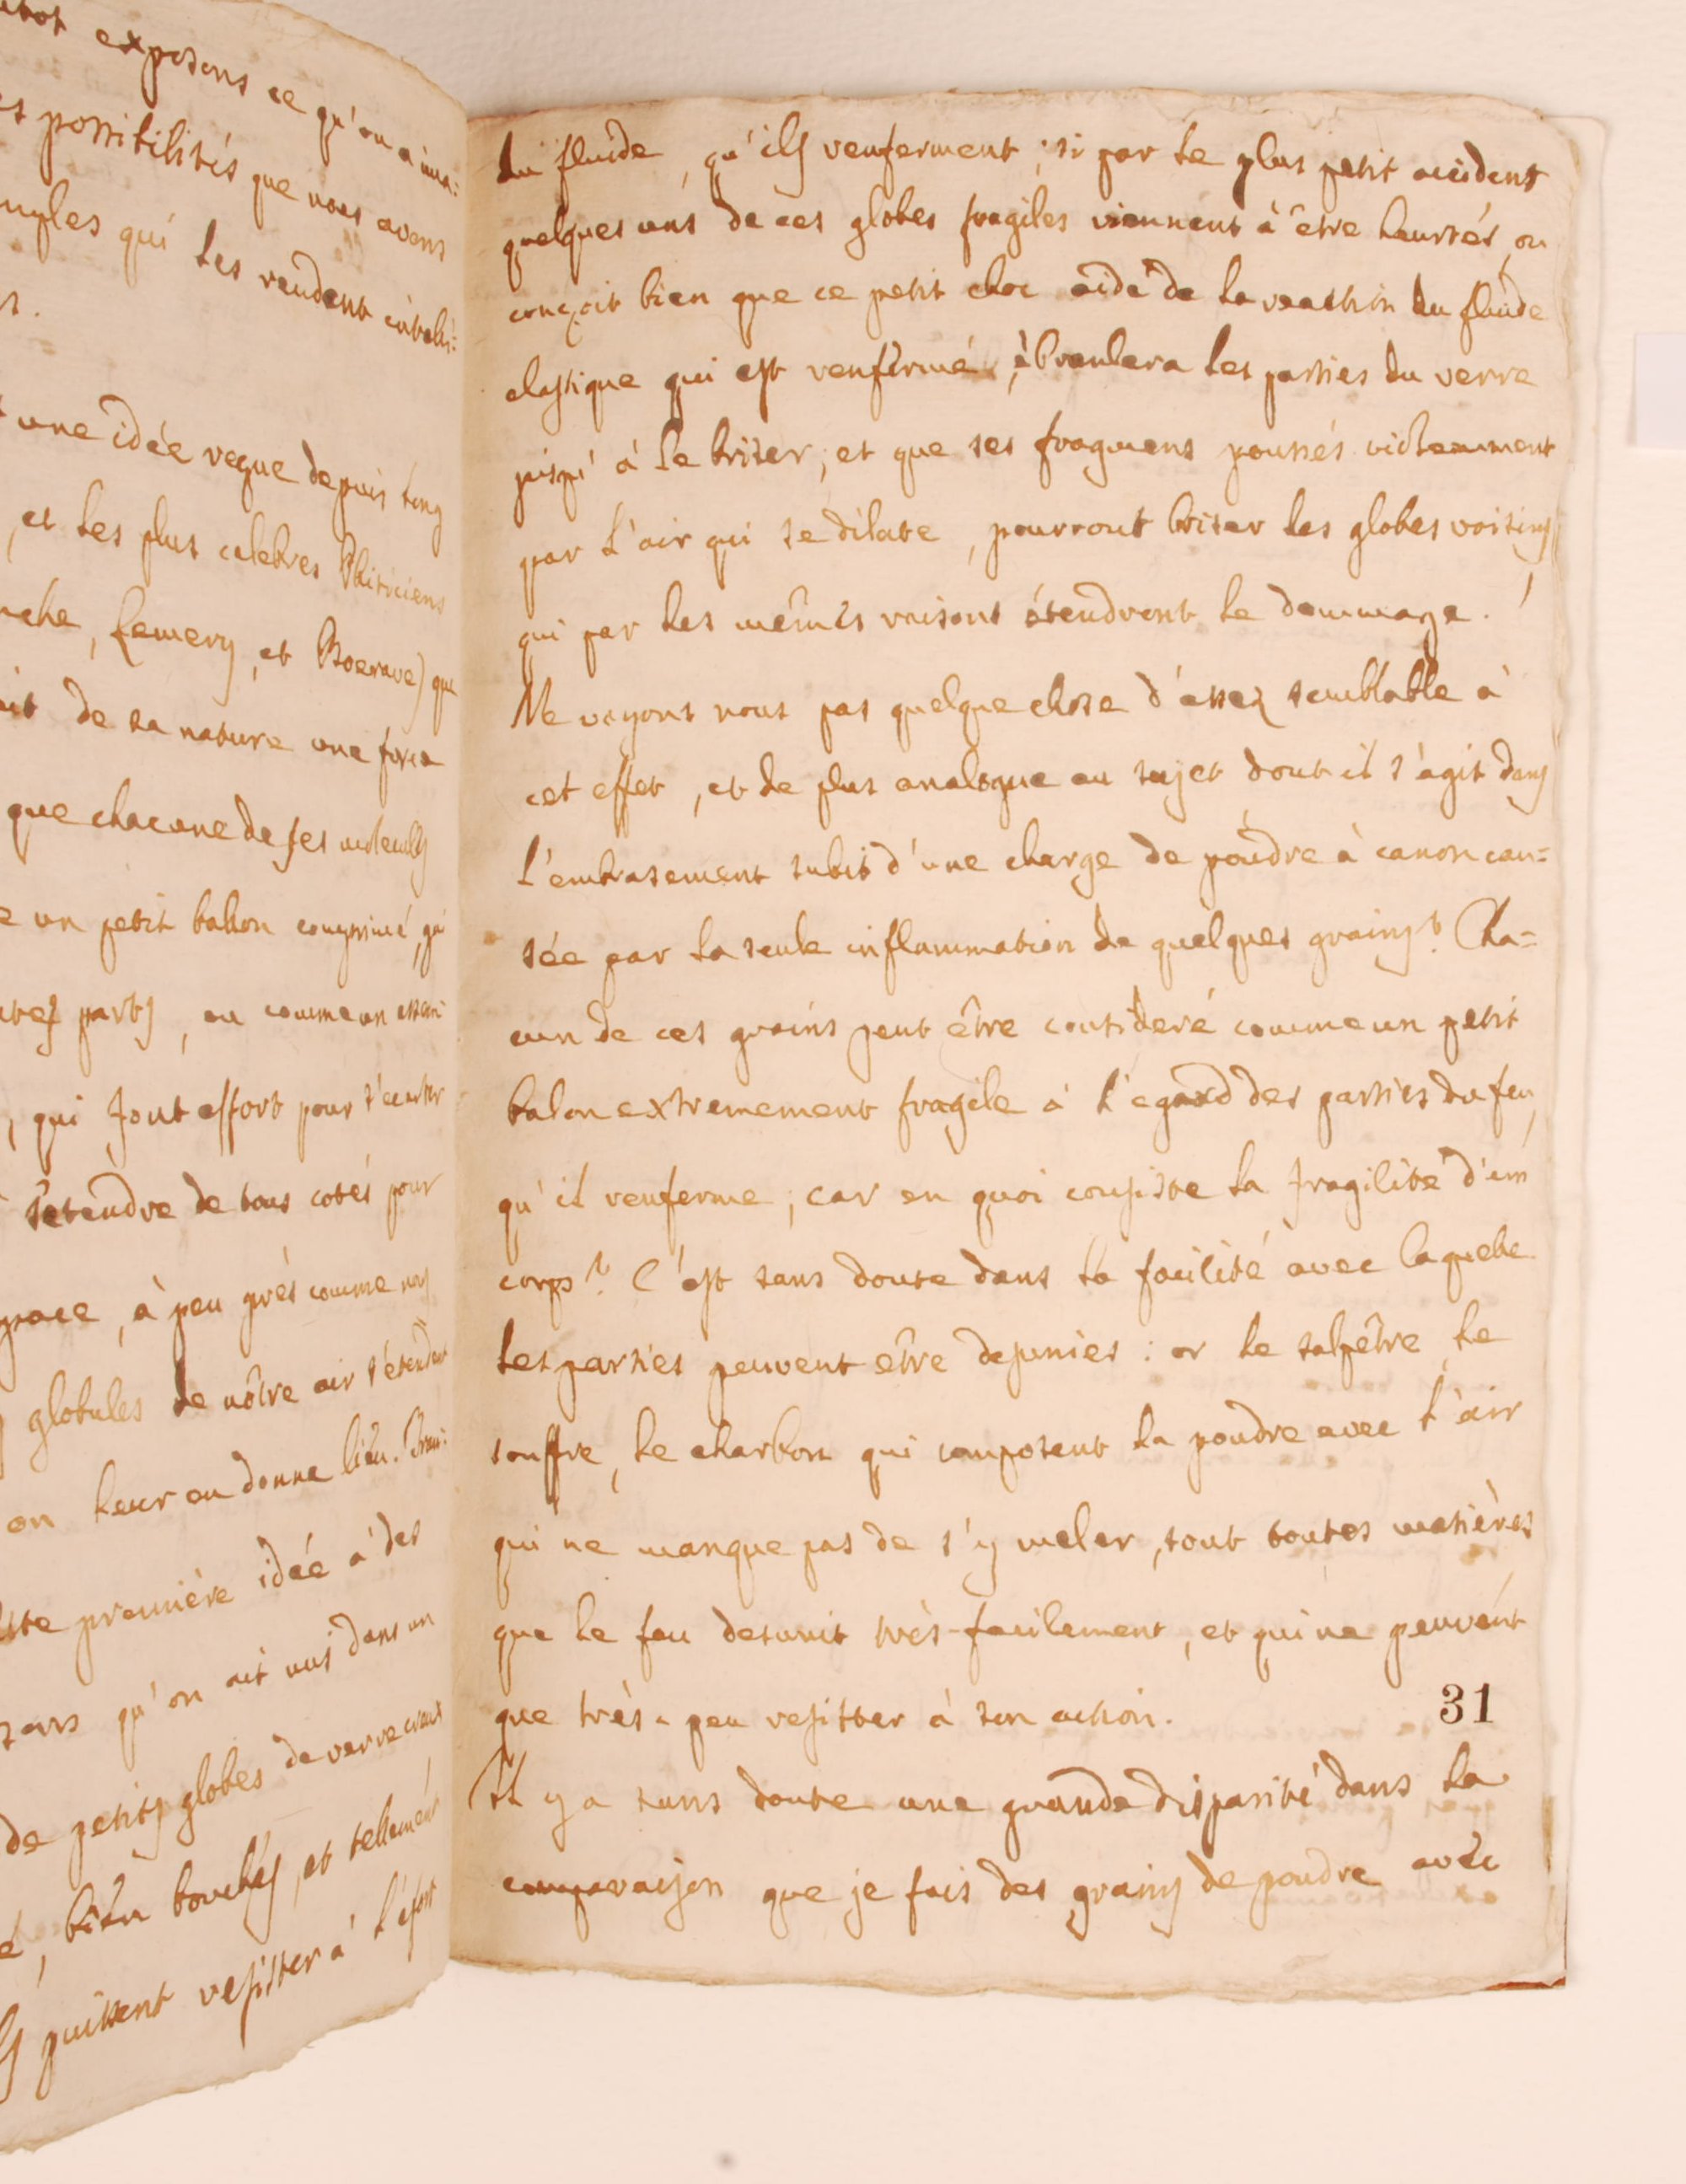 exposons ce qu'on a ima:
possibilités que nous avons
ngles qui les rendent inhabi:
une idée vague depuis long
, et les plus celebres Phisiciens
che, Lemery, et Boerave) que
de sa nature une force
que chacune de ses molecules
un petit ballon comprimé, qui
partes, ou comme un
, qui font effort pour s'ecarter
s'etendre de tous cotés pour
space, à peu prés comme nos
globules de nôtre air s'étendent
on leur en donne lieu.
première idée a des
sans qu'on ait mis dans un
de petits globes de verre creux
, bien bouchés, et tellement
puissent resister à l'éfort
du fluide, qu'ils renferment ; si par le plus petit accident
quelques uns de ces globes fragiles viennent à être heurtés, on
conçoit bien que ce petit choc aidé de la reaction du fluide
elastique qui est renfermé, èbranlera les parties du verre
jusqu' à le briser, et que ses fragmens poussés violemment
par l'air qui se dilate, pourront briser les globes voisins,
qui par les mêmes raisons étendront le dommage.
Ne voyons nous pas quelque chose d'assez semblable à
cet effet, et de plus analogue au sujet dont il s'agit dans
l'embrasement subit d'une charge de poudre à canon cau=
sée par la seule inflammation de quelques grains? Cha=
cun de ces grains peut être consideré comme un petit
balon extremement fragile à l'egard des parties du feu,
qu'il renferme ; car en quoi consiste la fragilité d'un
corps? C'est sans doute dans la facilité avec laquelle
les parties peuvent être desunies : or le salpêtre, le
souffre, le charbon qui composent la poudre avec l'air
qui ne manque pas de s'y meler, sont toutes matières
que le feu desunit très-facilement, et qui ne peuvent
que très-peu resister à son action.
31
Il y a sans doute une grande disparité dans la
comparaison que je fais des grains de poudre avec